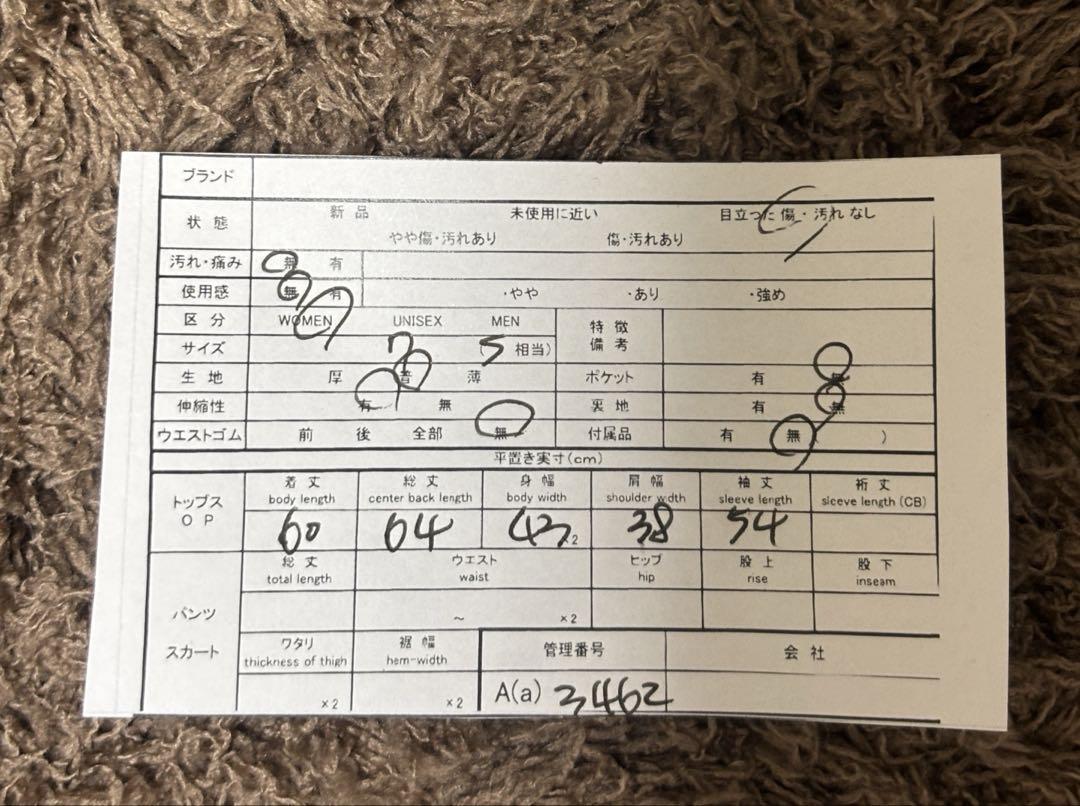 ブランド
状態 新品 未使用に近い 目立った傷・汚れなし
やや傷・汚れあり 傷・汚れあり
汚れ・痛み 無 有
使用感 無 有 ・やや ・あり ・強め
区分 WOMEN UNISEX MEN 特徴
備考
サイズ 7 (S 相当)
生地 厚 普 薄 ポケット 有 無
伸縮性 有 無 裏地 有 無
ウエストゴム 前 後 全部 無 付属品 有 無( )
平置き実寸(cm)
着丈 総丈 身幅 肩幅 袖丈 裄丈
トップス body length center back length body width shoulder width sleeve length sleeve length (CB)
OP 60 64 43 x2 38 54
総丈 ウエスト ヒップ 股上 股下
total length waist hip rise inseam
パンツ ～ ×2
スカート ワタリ 裾幅 管理番号 会社
thickness of thigh hem-width
×2 ×2 A(a) 3462